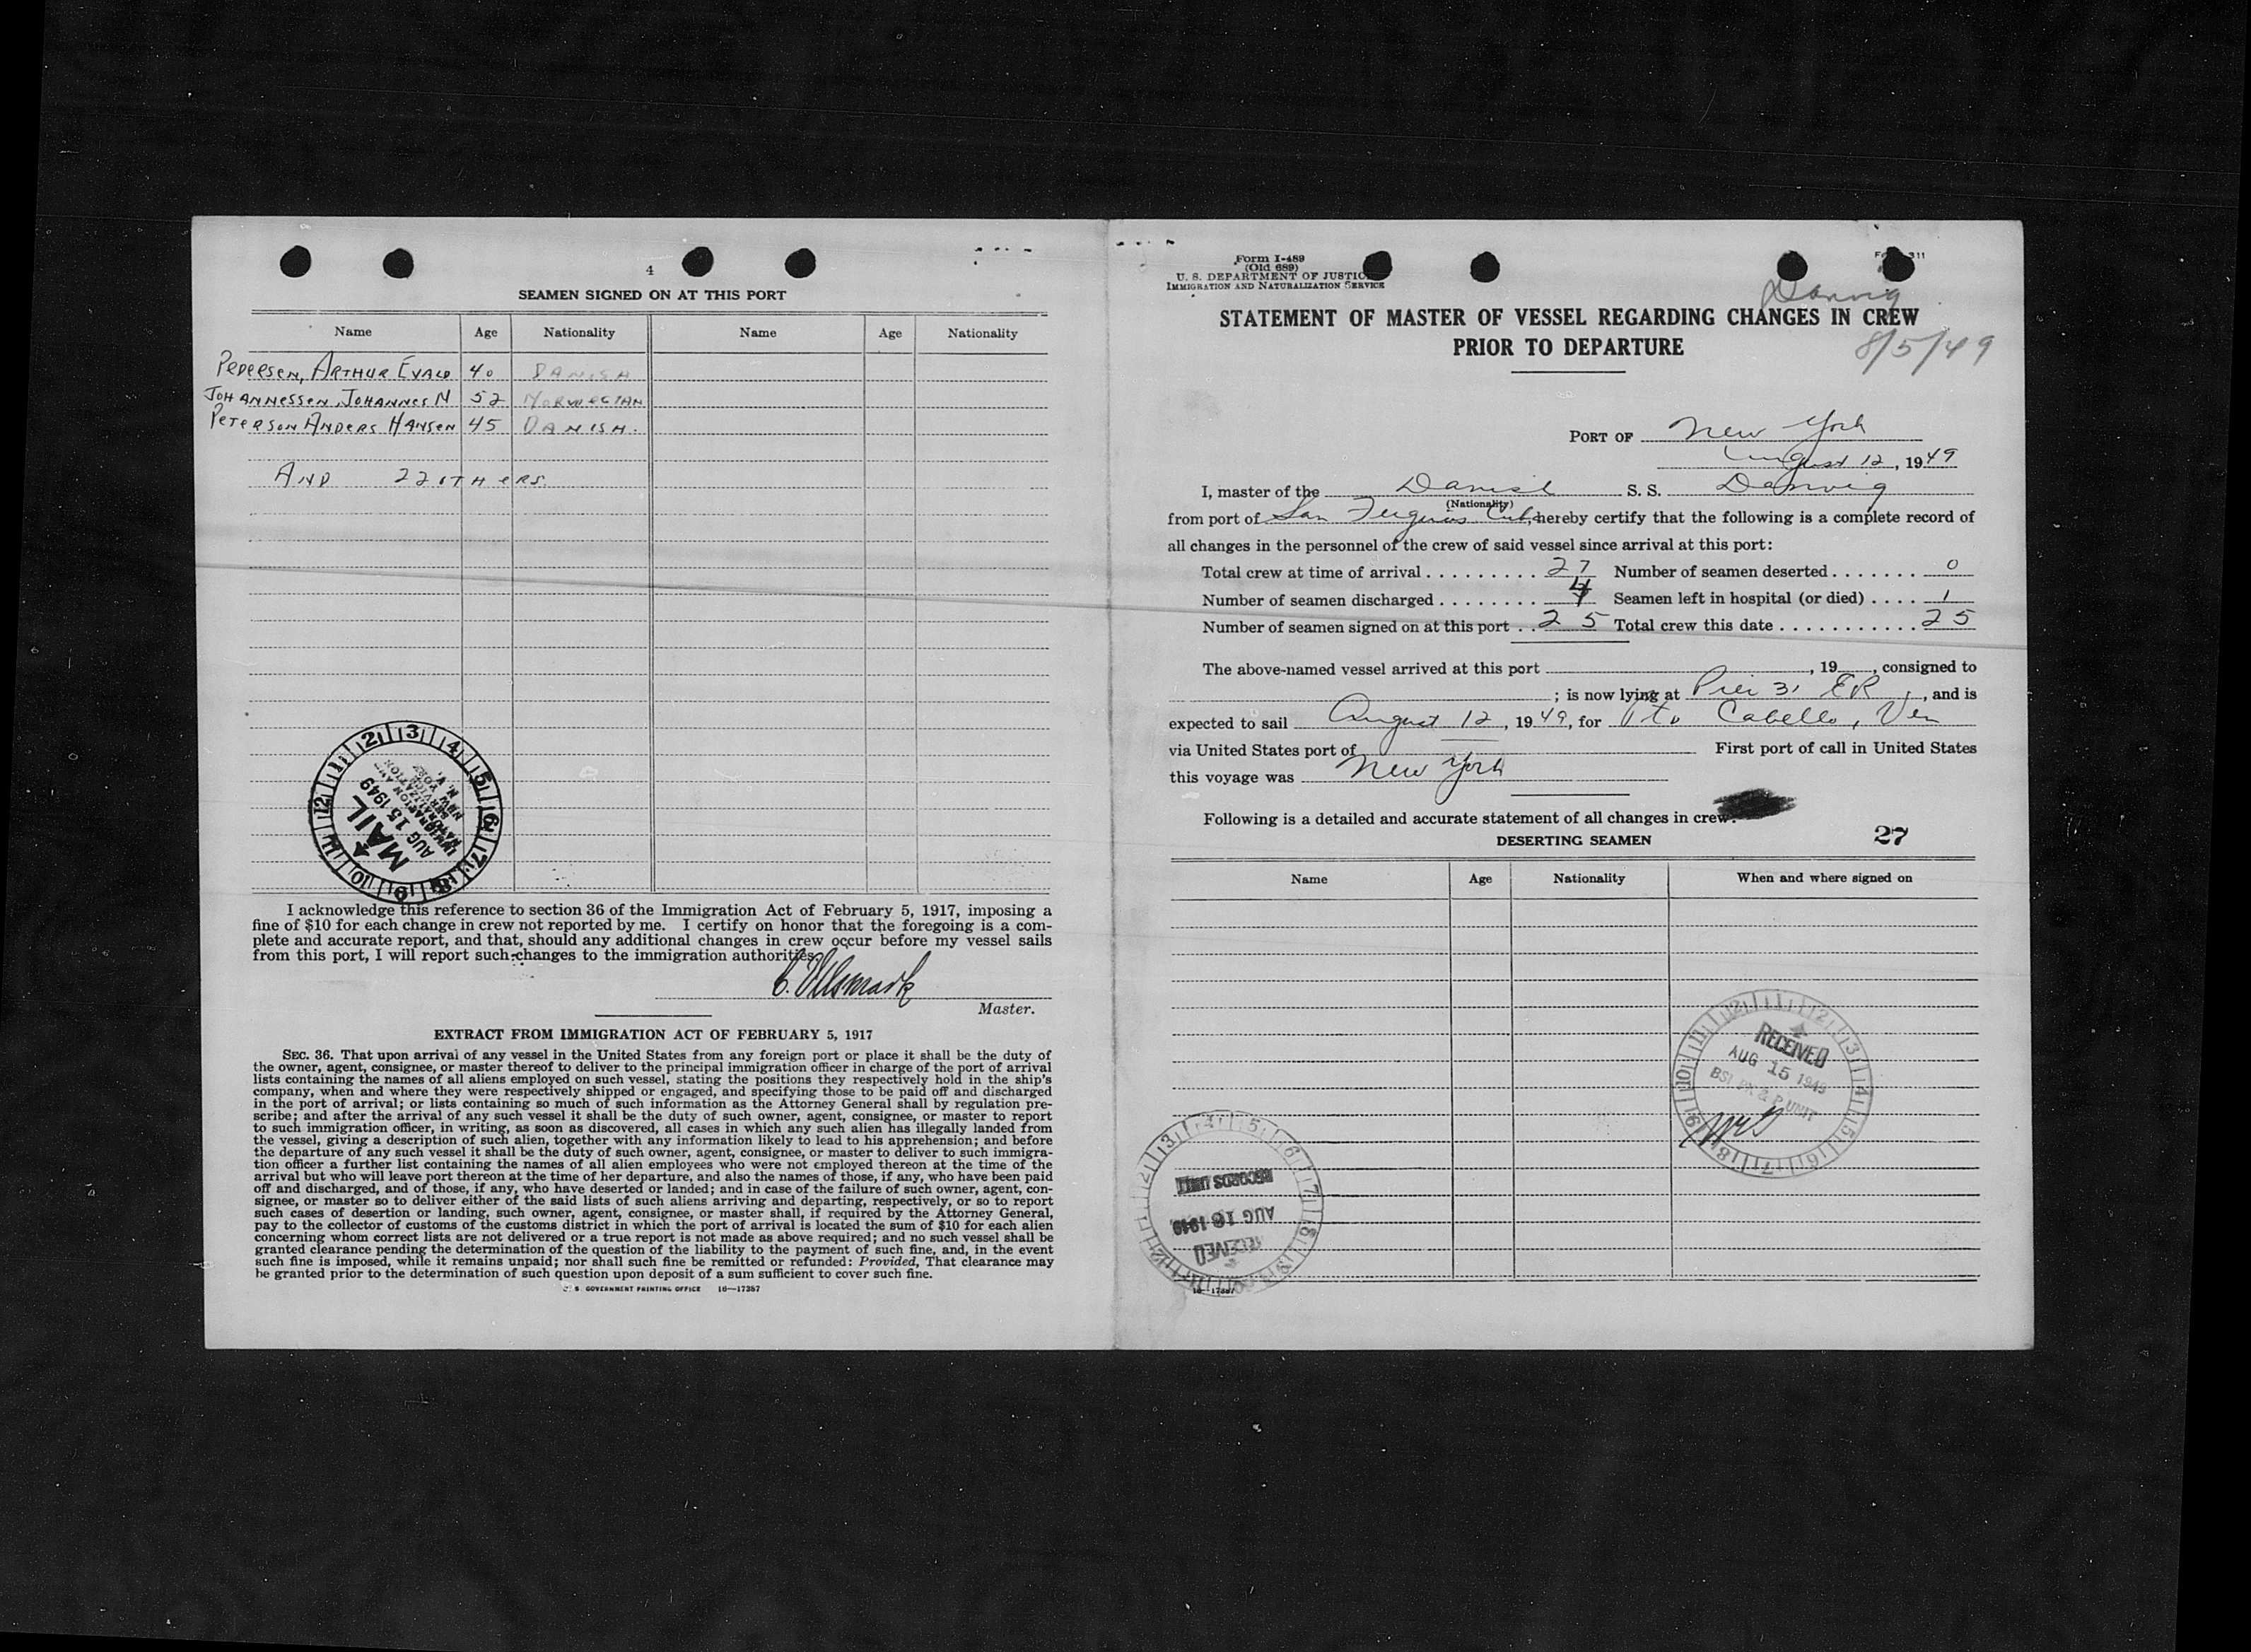 4
SEAMEN SIGNED ON AT THIS PORT
Name Age Nationality Name Age Nationality
PEDERSEN, ARTHUR EVALD 40 DANISH
JOHANNESSEN, JOHANNES N 52 NORWEGIAN
PETERSON ANDERS HANSEN 45 DANISH.
AND 22 OTHERS.
1 2 3 4 5 6 7 8 9 10 11 12
MAIL
AUG 15 1949
IMMIGRATION AND
NATURALIZATION
SERVICE
NEW YORK
N. Y.
I acknowledge this reference to section 36 of the Immigration Act of February 5, 1917, imposing a
fine of $10 for each change in crew not reported by me. I certify on honor that the foregoing is a com-
plete and accurate report, and that, should any additional changes in crew occur before my vessel sails
from this port, I will report such changes to the immigration authorities.
Master.
EXTRACT FROM IMMIGRATION ACT OF FEBRUARY 5, 1917
SEC. 36. That upon arrival of any vessel in the United States from any foreign port or place it shall be the duty of
the owner, agent, consignee, or master thereof to deliver to the principal immigration officer in charge of the port of arrival
lists containing the names of all aliens employed on such vessel, stating the positions they respectively hold in the ship's
company, when and where they were respectively shipped or engaged, and specifying those to be paid off and discharged
in the port of arrival; or lists containing so much of such information as the Attorney General shall by regulation pre-
scribe; and after the arrival of any such vessel it shall be the duty of such owner, agent, consignee, or master to report
to such immigration officer, in writing, as soon as discovered, all cases in which any such alien has illegally landed from
the vessel, giving a description of such alien, together with any information likely to lead to his apprehension; and before
the departure of any such vessel it shall be the duty of such owner, agent, consignee, or master to deliver to such immigra-
tion officer a further list containing the names of all alien employees who were not employed thereon at the time of the
arrival but who will leave port thereon at the time of her departure, and also the names of those, if any, who have been paid
off and discharged, and of those, if any, who have deserted or landed; and in case of the failure of such owner, agent, con-
signee, or master so to deliver either of the said lists of such aliens arriving and departing, respectively, or so to report
such cases of desertion or landing, such owner, agent, consignee, or master shall, if required by the Attorney General,
pay to the collector of customs of the customs district in which the port of arrival is located the sum of $10 for each alien
concerning whom correct lists are not delivered or a true report is not made as above required; and no such vessel shall be
granted clearance pending the determination of the question of the liability to the payment of such fine, and, in the event
such fine is imposed, while it remains unpaid; nor shall such fine be remitted or refunded: Provided, That clearance may
be granted prior to the determination of such question upon deposit of a sum sufficient to cover such fine.
U. S. GOVERNMENT PRINTING OFFICE 16—17387
Form I-489
(Old 689)
U. S. DEPARTMENT OF JUSTICE
IMMIGRATION AND NATURALIZATION SERVICE
311
Danvig
STATEMENT OF MASTER OF VESSEL REGARDING CHANGES IN CREW
PRIOR TO DEPARTURE
8/5/49
PORT OF New York
August 12, 1949
I, master of the Danish S. S. Danvig
(Nationality)
from port of San Cuba, hereby certify that the following is a complete record of
all changes in the personnel of the crew of said vessel since arrival at this port:
Total crew at time of arrival . . . . . . . . . 27 Number of seamen deserted . . . . . . . 0
Number of seamen discharged . . . . . . . . 4 Seamen left in hospital (or died) . . . . 1
Number of seamen signed on at this port . . 25 Total crew this date . . . . . . . . . . . 25
The above-named vessel arrived at this port , 19 , consigned to
; is now lying at Pier 31 ER , and is
expected to sail August 12, 1949, for Pto Cabello, Ven
via United States port of First port of call in United States
this voyage was New York
Following is a detailed and accurate statement of all changes in crew:
DESERTING SEAMEN 27
Name Age Nationality When and where signed on
1 2 3 4 5 6 7 8 9 10 11 12
RECEIVED
AUG 15 1949
BSI PA & P UNIT
RECORDS UNIT
AUG 16 1949
RECEIVED
16—17387